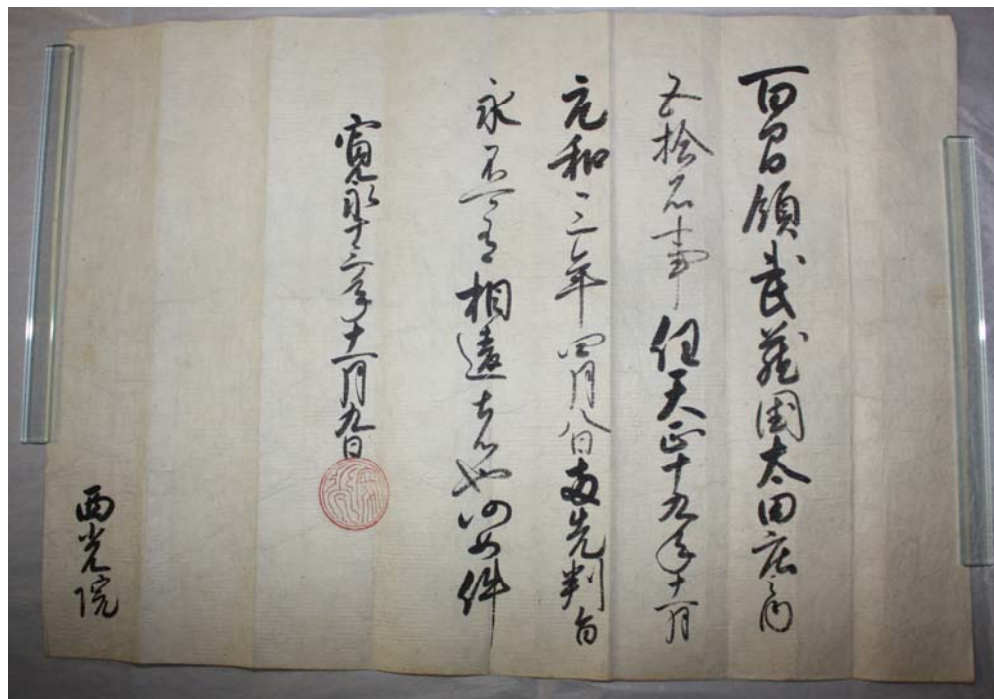 百間領武蔵国太田庄之内
五拾石事任天正十九年十一月
元和三年四月八日両先判旨
永不可有相違者也仍如件
寛永十三年十一月九日
西光院